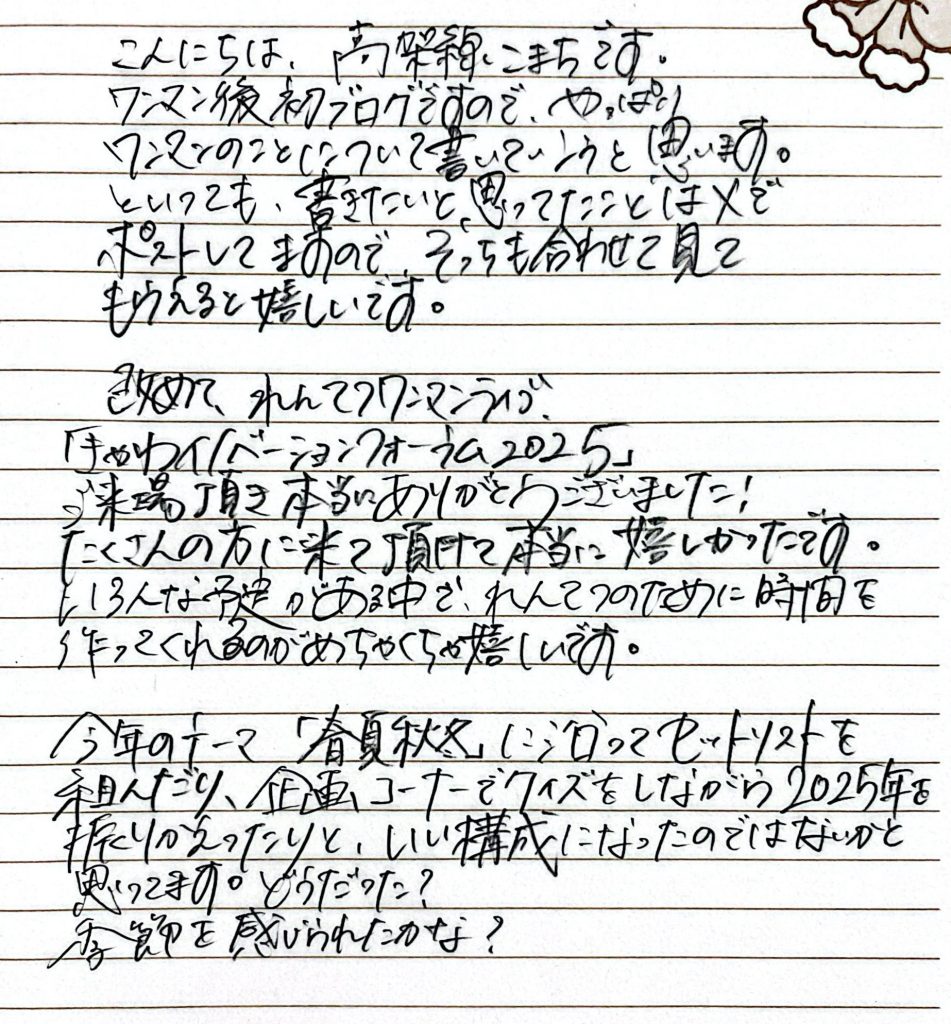 こんにちは、高架線こまちです。
ワンマン後初ブログですので、やっぱり
ワンマンのことについて書いていこうと思います。
といっても、書きたいと思ってたことはXで
ポストしてますので、そっちも合わせて見て
もらえると嬉しいです。
改めて、れんてつワンマンライブ、
「きゃわイノベーションフォーラム2025」
ご来場頂き本当にありがとうございました!
たくさんの方に来て頂けて本当に嬉しかったです。
いろんな予定がある中で、れんてつのために時間を
作ってくれるのがめちゃくちゃ嬉しいです。
今年のテーマ「春夏秋冬」に沿ってセットリストを
組んだり、企画コーナーでクイズをしながら2025年を
振りかえったりと、いい構成になったのではないかと
思ってます。どうだった?
季節を感じられたかな?